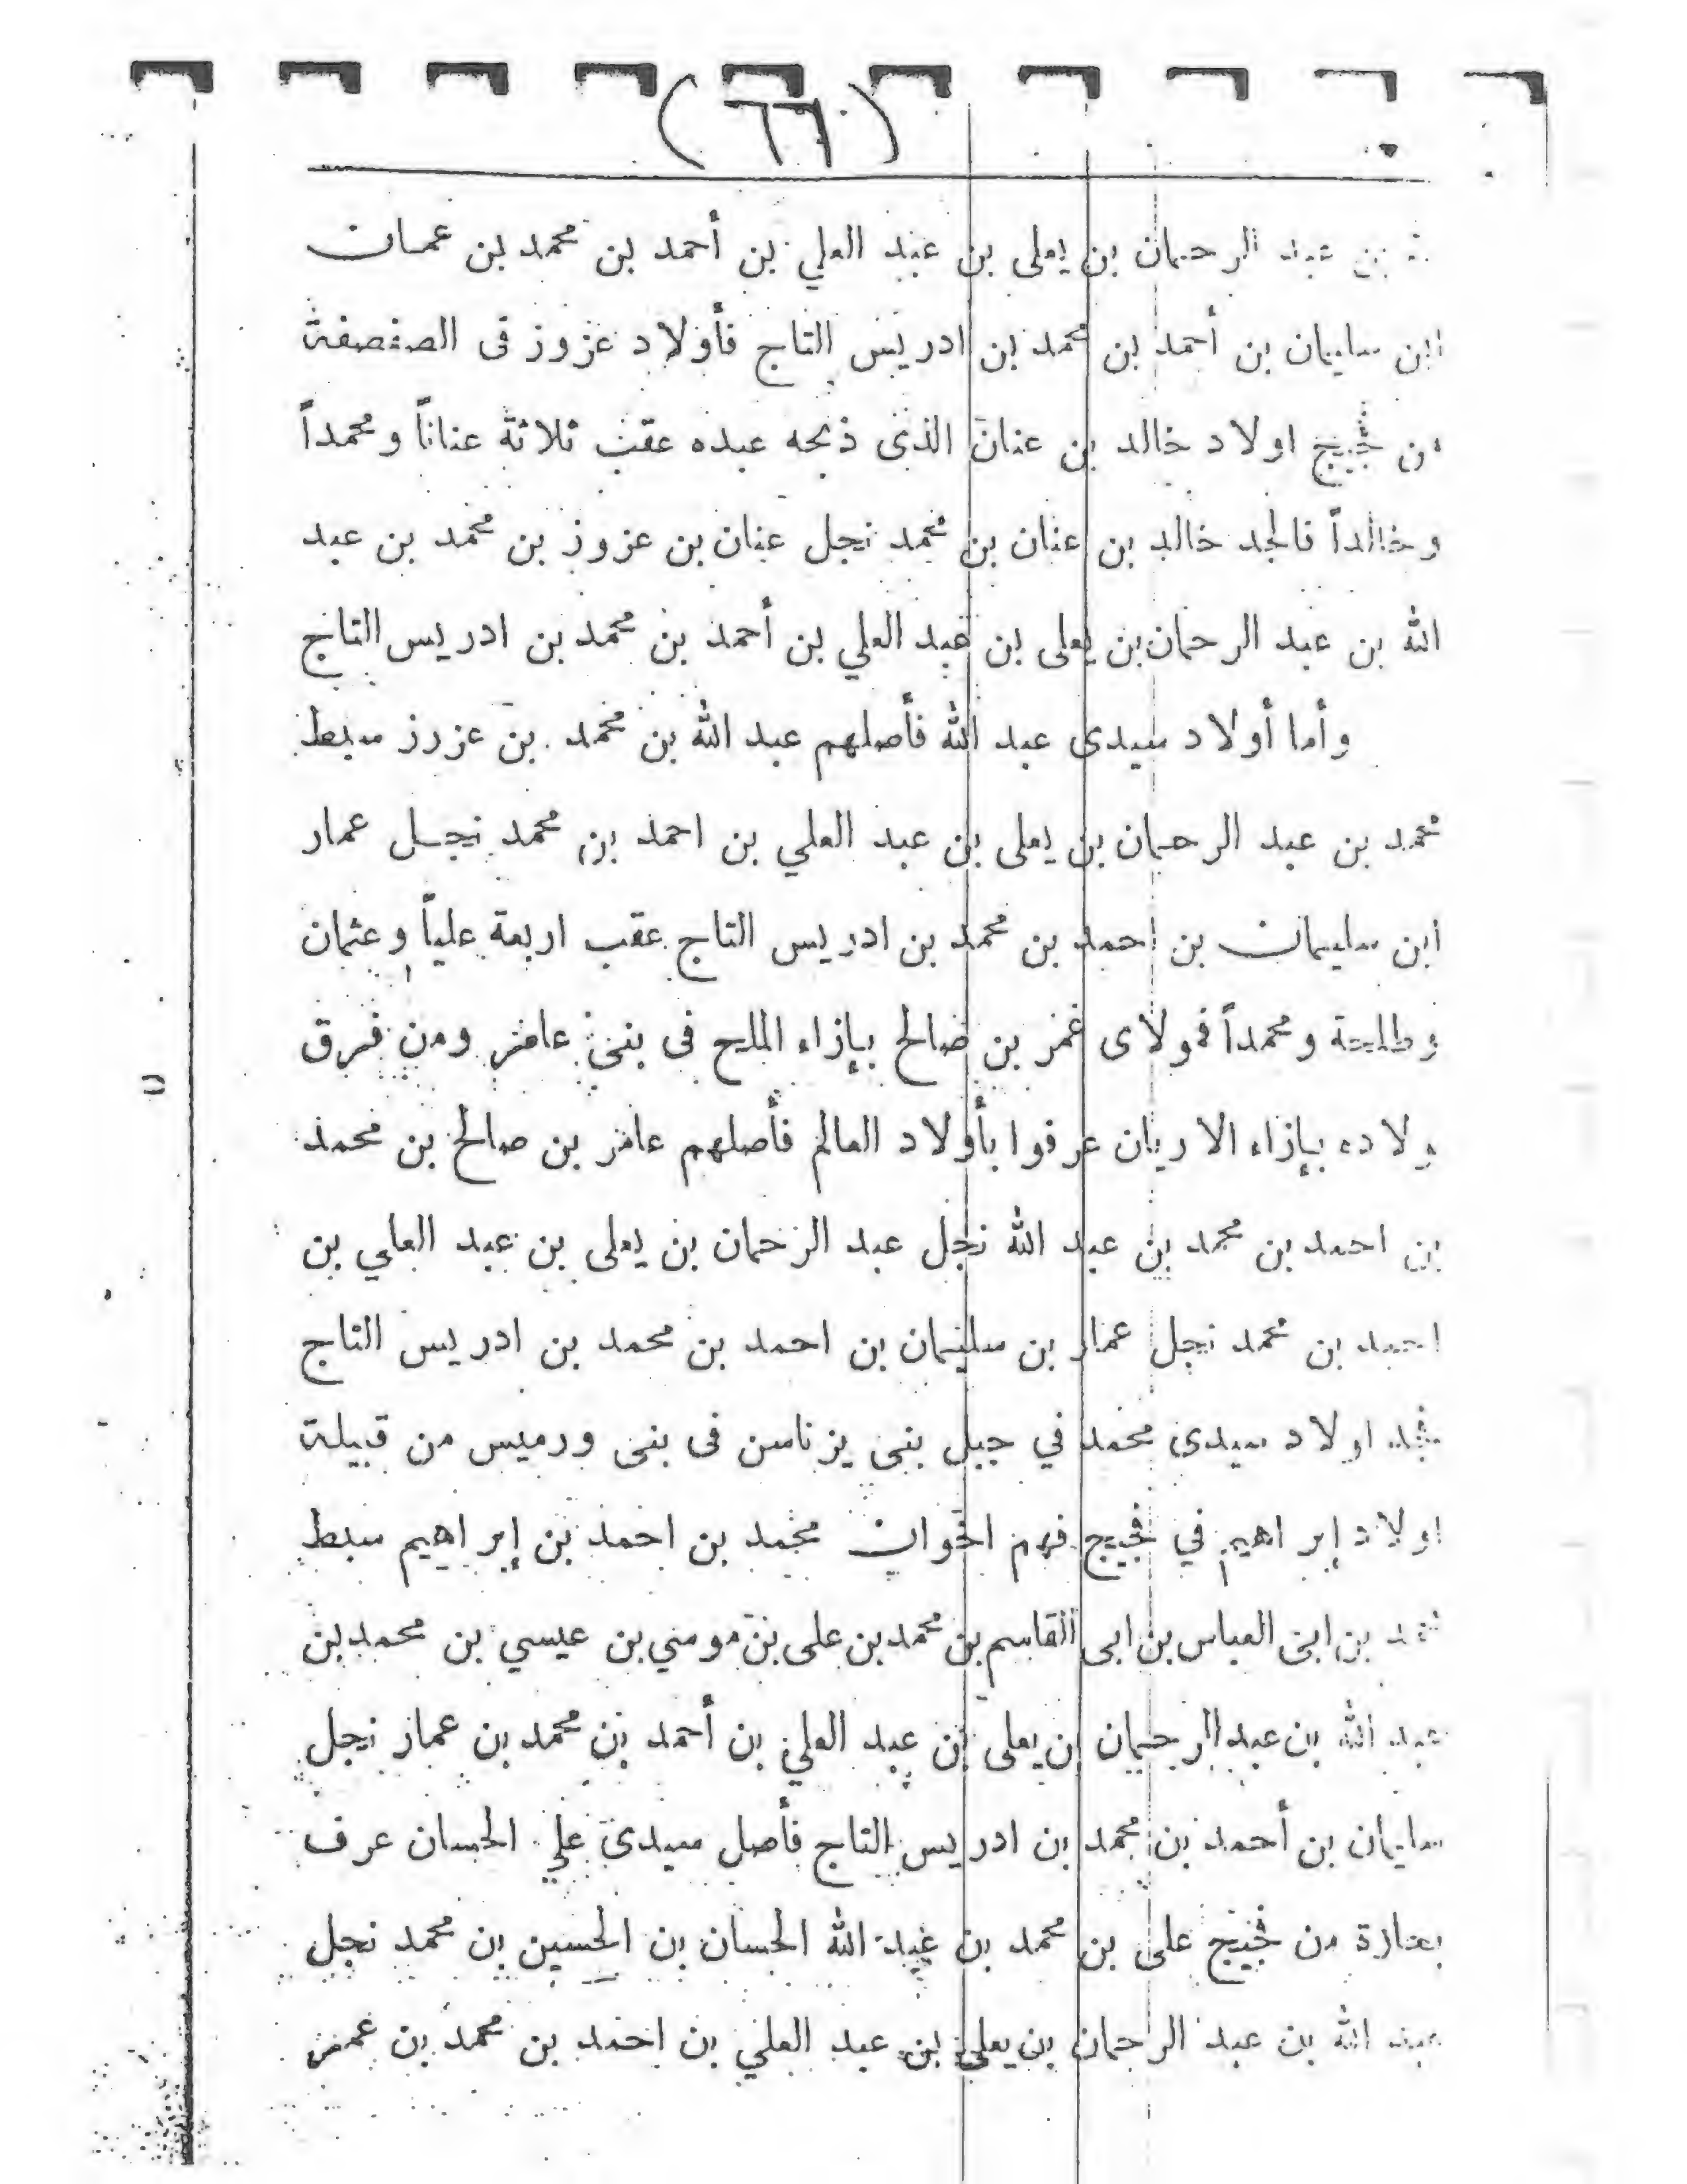 (٦٦)
بن عبد الرحمان بن يعلى بن عبد العلي بن أحمد بن محمد بن عمـــان
ابن سليمان بن أحمد بن محمد بن ادريس التاج فأولاد عزوز فى الصفصفة
من فجيج اولاد خالد بن عنان الذى ذبحه عبده عقب ثلاثة عناناً ومحمداً
وخالداً فالجد خالد بن عنان بن محمد نجل عنان بن عزوز بن محمد بن عبد
الله بن عبد الرحمان بن يعلى بن عبد العلي بن أحمد بن محمد بن ادريس التاج
وأما أولاد سيدى عبد الله فأصلهم عبد الله بن محمد بن عزوز سبط
محمد بن عبد الرحمان بن يعلى بن عبد العلي بن احمد بن محمد نجــل عمار
ابن سليمان بن احمد بن محمد بن ادريس التاج عقب اربعة علياً وعثمان
وطلحة ومحمداً فولاى عمر بن صالح بإزاء الملح فى بنى عامر ومن فرق
ولاده بإزاء الاريان عرفوا بأولاد العالم فأصلهم عامر بن صالح بن محمد
بن احمد بن محمد بن عبد الله نجل عبد الرحمان بن يعلى بن عبد العلي بن
احمد بن محمد نجل عمار بن سليمان بن احمد بن محمد بن ادريس التاج
فجد اولاد سيدى محمد في جبل بنى يزناسن فى بنى ورميس من قبيلة
اولاد إبراهيم في فجيج فهم اخوان محمد بن احمد بن إبراهيم سبط
بن ابى العباس بن ابى القاسم بن محمد بن على بن مومني بن عيسي بن محمد بن
عبد الله بن عبد الرحمان بن يعلى بن عبد العلي بن أحمد بن محمد بن عمار نجل
سليمان بن أحمد بن محمد بن ادريس التاج فأصل سيدى علي الحسان عرف
بعارة من فجيج على بن محمد بن عبد الله الحسان بن الحسين بن محمد نجل
عبد الله بن عبد الرحمان بن يعلى بن عبد العلي بن احمد بن محمد بن عمر